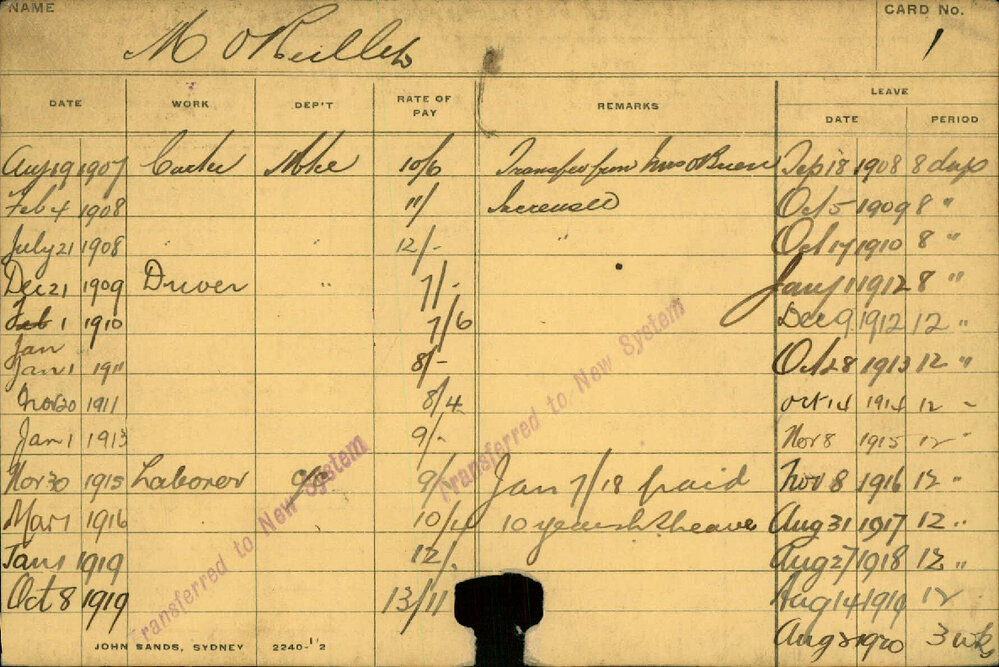 NAME
M O'Reilly
CARD No.
1
DATE WORK DEP'T RATE OF PAY REMARKS LEAVE
DATE PERIOD
Aug 19 1907 Carter 10/6 Transfer from O'Brien Sep 18 1908 8 days
Feb 4 1908 11/ Increased Oct 5 1909 8 "
July 21 1908 " " 12/- " Oct 17 1910 8 "
Dec 21 1909 Driver " 7/- Jany 1 1912 8 "
Feb 1 1910 7/6 Dec 9 1912 12 "
Jan
Jan 1 1911 8/- Oct 28 1913 12 "
Nov 20 1911 8/4 Oct 14 1914 12 "
Jan 1 1913 9/- Nov 8 1915 12 "
Nov 30 1915 Laborer 9/- Jan 7/18 paid Nov 8 1916 12 "
Mar 1 1916 10/4 10 years leave Aug 31 1917 12 "
Jan 1 1919 12/- Aug 27 1918 12 "
Oct 8 1919 13/11 Aug 14 1919 12
Aug 2 1920 3 wks
Transferred to New System
Transferred to New System
JOHN SANDS, SYDNEY 2240-1/2